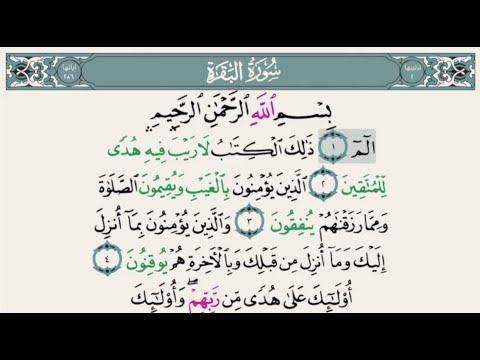 ترتيبها ٢ سُورَةُ البَقَرَةِ آياتها ٢٨٦
بِسْمِ اللَّهِ الرَّحْمَٰنِ الرَّحِيمِ
الٓمٓ ١ ذَٰلِكَ الْكِتَٰبُ لَا رَيْبَ فِيهِ هُدًى
لِّلْمُتَّقِينَ ٢ الَّذِينَ يُؤْمِنُونَ بِالْغَيْبِ وَيُقِيمُونَ الصَّلَاةَ
وَمِمَّا رَزَقْنَٰهُمْ يُنفِقُونَ ٣ وَالَّذِينَ يُؤْمِنُونَ بِمَا أُنزِلَ
إِلَيْكَ وَمَا أُنزِلَ مِن قَبْلِكَ وَبِالْآخِرَةِ هُمْ يُوقِنُونَ ٤
أُولَٰٓئِكَ عَلَىٰ هُدًى مِّن رَّبِّهِمْ ۖ وَأُولَٰٓئِكَ